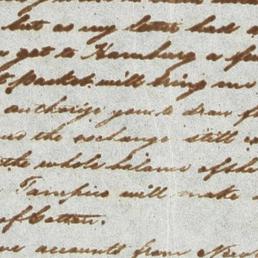 but as my letter had a
got to Hamburg a few
Packet will bring me
authorize you to draw f
and the exchange still
the whole balance of the
Tampico will make
of better.
accounts from New